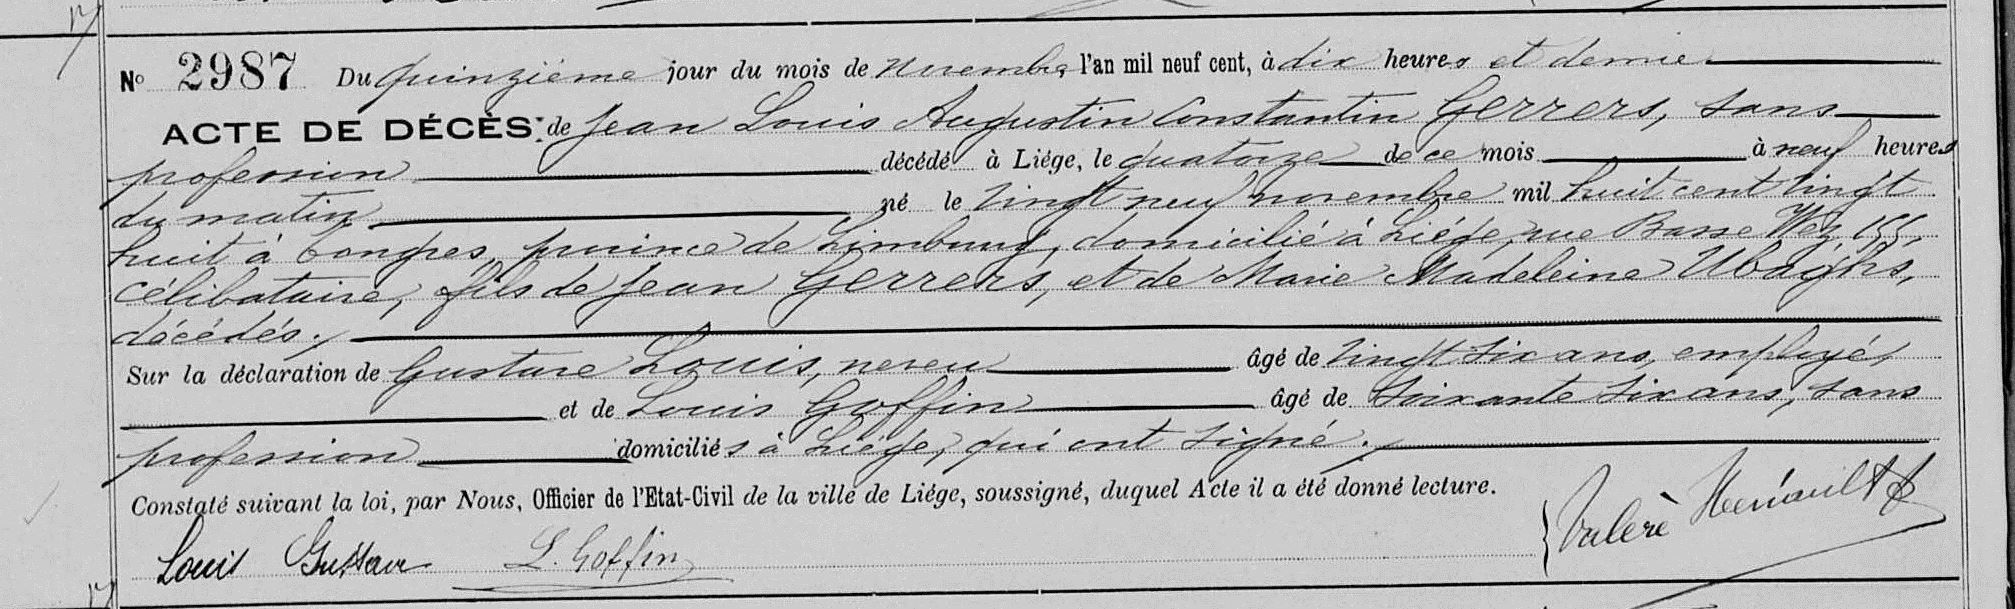 N° 2987 Du quinzième jour du mois de novembre l'an mil neuf cent, à dix heures et demie
ACTE DE DÉCÈS: de Jean Louis Augustin Constantin Gerrers, sans
profession décédé à Liége, le quatorze de ce mois à neuf heures
du matin né le vingt neuf novembre mil huit cent vingt
huit à Tongres, province de Limbourg, domicilié à Liége, rue Basse Wez, 155,
célibataire, fils de Jean Gerrers, et de Marie Madeleine Ubaghs,
décédés.
Sur la déclaration de Gustave Louis, neveu âgé de vingt six ans, employé,
et de Louis Goffin âgé de soixante six ans, sans
profession domiciliés à Liége, qui ont signé.
Constaté suivant la loi, par Nous, Officier de l'Etat-Civil de la ville de Liége, soussigné, duquel Acte il a été donné lecture.
Louis Gustave L. Goffin Valère Hénault